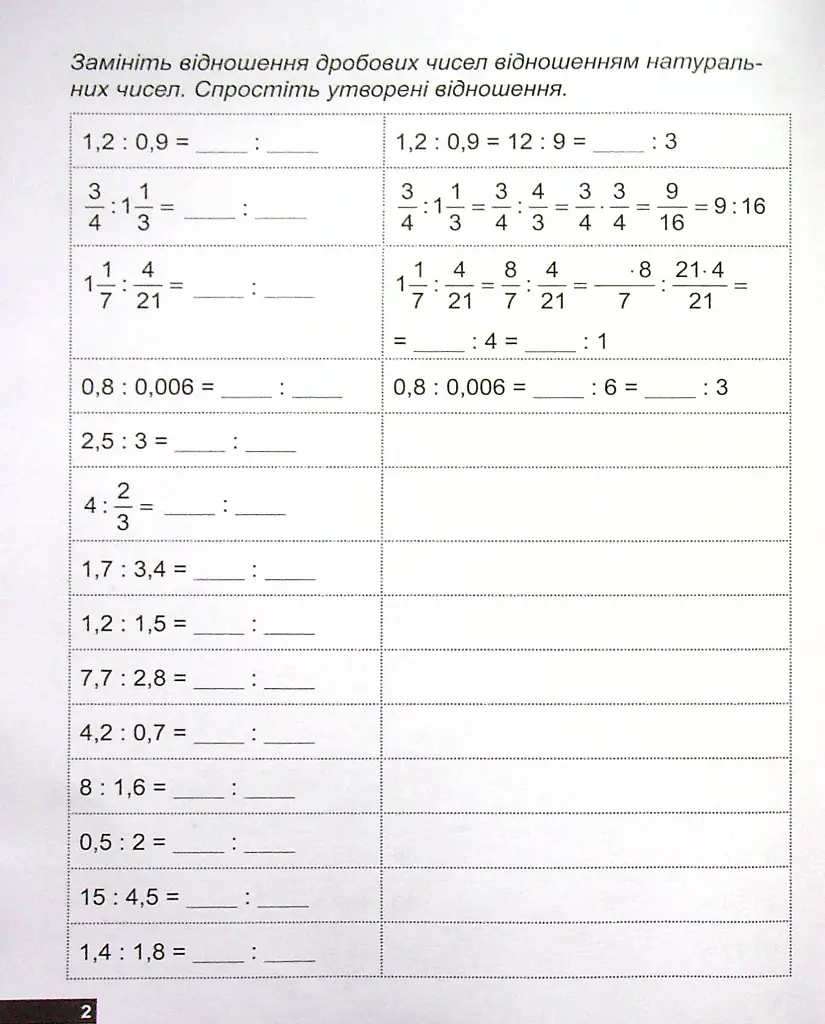 Замініть відношення дробових чисел відношенням натураль-
них чисел. Спростіть утворені відношення.
1,2 : 0,9 = ____ : ____ 1,2 : 0,9 = 12 : 9 = ____ : 3
3/4 : 1 1/3 = ____ : ____ 3/4 : 1 1/3 = 3/4 : 4/3 = 3/4 · 3/4 = 9/16 = 9 : 16
1 1/7 : 4/21 = ____ : ____ 1 1/7 : 4/21 = 8/7 : 4/21 = ____·8/7 : 21·4/21 =
= ____ : 4 = ____ : 1
0,8 : 0,006 = ____ : ____ 0,8 : 0,006 = ____ : 6 = ____ : 3
2,5 : 3 = ____ : ____
4 : 2/3 = ____ : ____
1,7 : 3,4 = ____ : ____
1,2 : 1,5 = ____ : ____
7,7 : 2,8 = ____ : ____
4,2 : 0,7 = ____ : ____
8 : 1,6 = ____ : ____
0,5 : 2 = ____ : ____
15 : 4,5 = ____ : ____
1,4 : 1,8 = ____ : ____
2